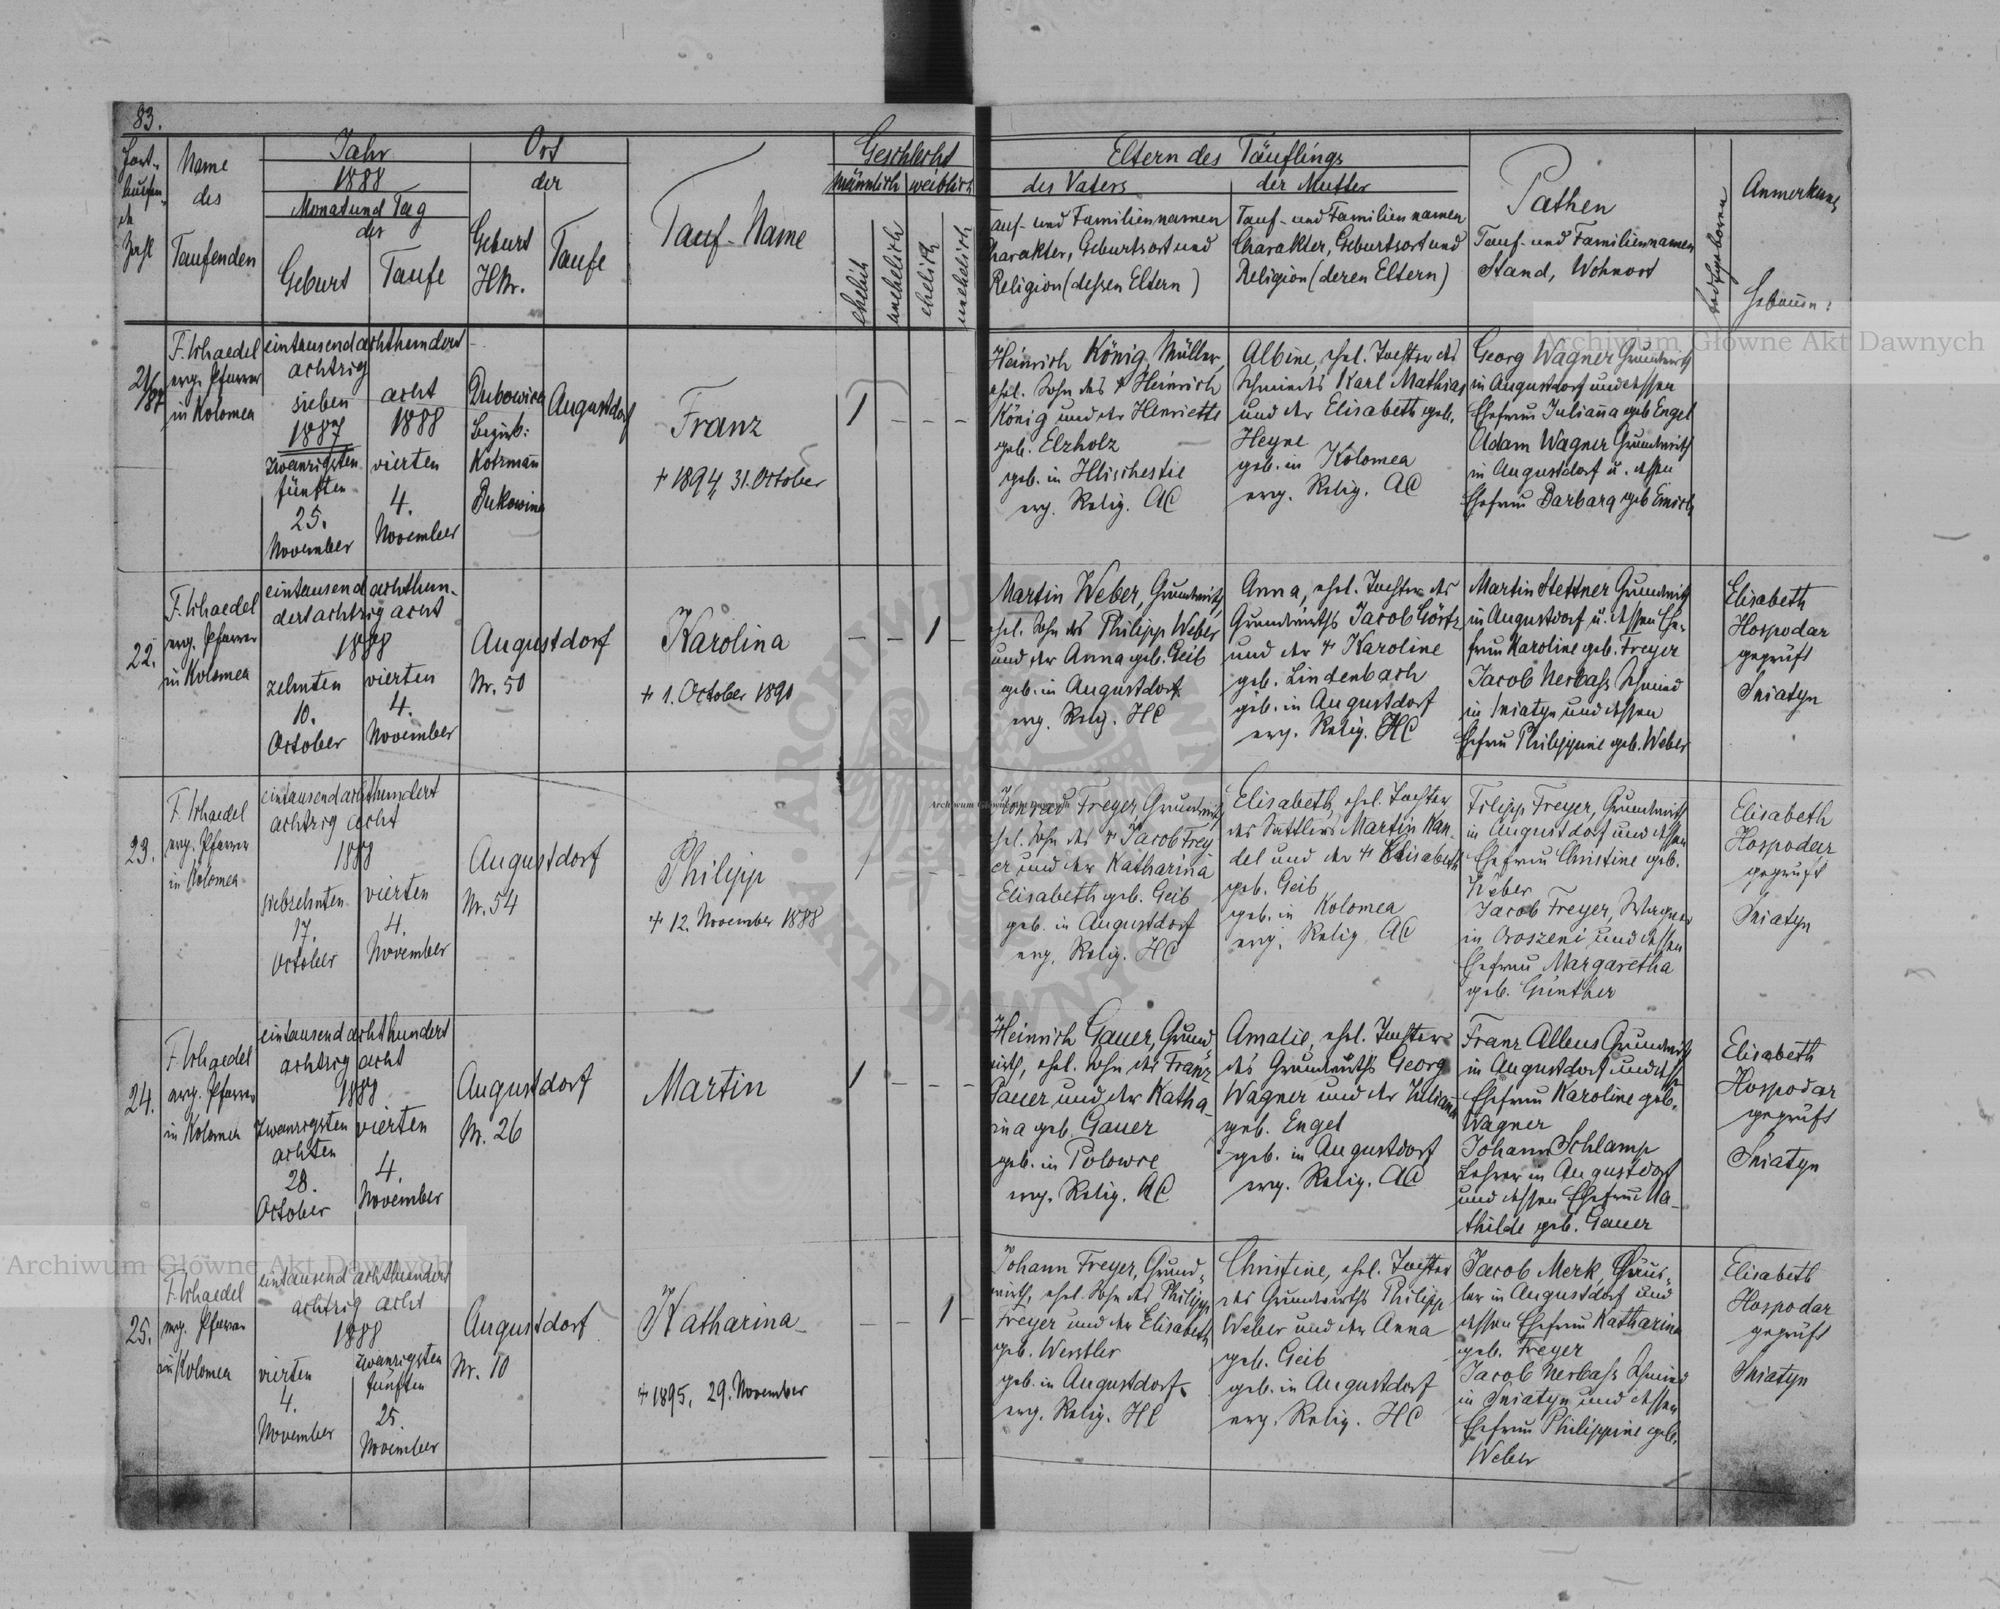 83.
Fort-
laufen-
de
Zahl
Name
des
Taufenden
Jahr
1888
Monat und Tag
der
Geburt
Taufe
Ort
der
Geburt
HNr.
Taufe
Tauf-Name
Geschlecht
männlich
weiblich
ehelich
unehelich
ehelich
unehelich
Eltern des Täuflings
des Vaters
Tauf- und Familiennamen
Charakter, Geburtsort und
Religion (dessen Eltern)
der Mutter
Tauf- und Familiennamen
Charakter, Geburtsort und
Religion (deren Eltern)
Pathen
Tauf- und Familiennamen
Stand, Wohnort
todtgeboren
Anmerkung
Hebamme:
21/87
F. Schaedel
evg. Pfarrer
in Kolomea
eintausend achthundert
achtzig
sieben
1887
zwanzigsten
fünften
25.
November
acht
1888
vierten
4.
November
Bezirk:
Kotzman
Bukowina
Augustdorf
Franz
+ 1894, 31. October
1 - - -
Heinrich König, Müller,
ehel. Sohn des + Heinrich
König und der Henriette
geb. Elzholz
geb. in Hlischestie
evg. Relig. AC
Albine, ehel. Tochter des
Schmieds Karl Mathias
und der Elisabeth geb.
Heyne
geb. in Kolomea
evg. Relig. AC
Georg Wagner Grundwirth
in Augustdorf und dessen
Ehefrau Julianna geb Engel
Adam Wagner Grundwirth
in Augustdorf u. dessen
Ehefrau Barbara geb Emich
22.
F. Schaedel
evg. Pfarrer
in Kolomea
eintausend achthun-
dert achtzig acht
1888
zehnten
10.
October
vierten
4.
November
Augustdorf
Nr. 50
Karolina
+ 1. October 1890
- - 1 -
Martin Weber, Grundwirth,
ehel. Sohn des Philipp Weber
und der Anna geb. Geib
geb. in Augustdorf
evg. Relig. HC
Anna, ehel. Tochter des
Grundwirths Jacob Görtz
und der + Karoline
geb. Lindenbach
geb. in Augustdorf
evg. Relig. HC
Martin Stettner Grundwirth
in Augustdorf u. dessen Ehe-
frau Karoline geb. Freyer
Jacob Nerbass Schmied
in Sniatyn und dessen
Ehefrau Philippine geb. Weber
Elisabeth
Hospodar
geprüft
Sniatyn
23.
F. Schaedel
evg. Pfarrer
in Kolomea
eintausend achthundert
achtzig acht
1888
siebzehnten
17.
October
vierten
4.
November
Augustdorf
Nr. 54
Philipp
+ 12. November 1888
1 - - -
Konrad Freyer, Grundwirth,
ehel. Sohn des + Jacob Frey-
er und der Katharina
Elisabeth geb. Geib
geb. in Augustdorf
evg. Relig. HC
Elisabeth, ehel. Tochter
des Sattlers Martin Kan-
del und der + Elisabeth
geb. Geib
geb. in Kolomea
evg. Relig. AC
Filipp Freyer, Grundwirth
in Augustdorf und dessen
Ehefrau Christine geb.
Weber
Jacob Freyer, Wagner
in Oroszeni und dessen
Ehefrau Margaretha
geb. Günther
Elisabeth
Hospodar
geprüft
Sniatyn
24.
F. Schaedel
evg. Pfarrer
in Kolomea
eintausend achthundert
achtzig acht
1888
zwanzigsten
achten
28.
October
vierten
4.
November
Augustdorf
Nr. 26
Martin
1 - - -
Heinrich Gauer, Grund-
wirth, ehel. Sohn des Franz
Gauer und der Katha-
rina geb. Gauer
geb. in Polowce
evg. Relig. AC
Amalie, ehel. Tochter
des Grundwirths Georg
Wagner und der Juliana
geb. Engel
geb. in Augustdorf
evg. Relig. AC
Franz Allens Grundwirth
in Augustdorf und dessen
Ehefrau Karoline geb.
Wagner
Johann Schlamp
Lehrer in Augustdorf
und dessen Ehefrau Ma-
thilde geb. Gauer
Elisabeth
Hospodar
geprüft
Sniatyn
25.
F. Schaedel
evg. Pfarrer
in Kolomea
eintausend achthundert
achtzig acht
1888
vierten
4.
November
zwanzigsten
fünften
25.
November
Augustdorf
Nr. 10
Katharina
+ 1895, 29. November
- - 1 -
Johann Freyer, Grund-
wirth, ehel. Sohn des Philipp
Freyer und der Elisabeth
geb. Wendler
geb. in Augustdorf
evg. Relig. HC
Christine, ehel. Tochter
des Grundwirths Philipp
Weber und der Anna
geb. Geib
geb. in Augustdorf
evg. Relig. HC
Jacob Merk, Häus-
ler in Augustdorf und
dessen Ehefrau Katharina
geb. Freyer
Jacob Nerbass Schmied
in Sniatyn und dessen
Ehefrau Philippine geb.
Weber
Elisabeth
Hospodar
geprüft
Sniatyn
Archiwum Główne Akt Dawnych
Archiwum Główne Akt Dawnych
Archiwum Główne Akt Dawnych
ARCHIWUM GŁÓWNE AKT DAWNYCH